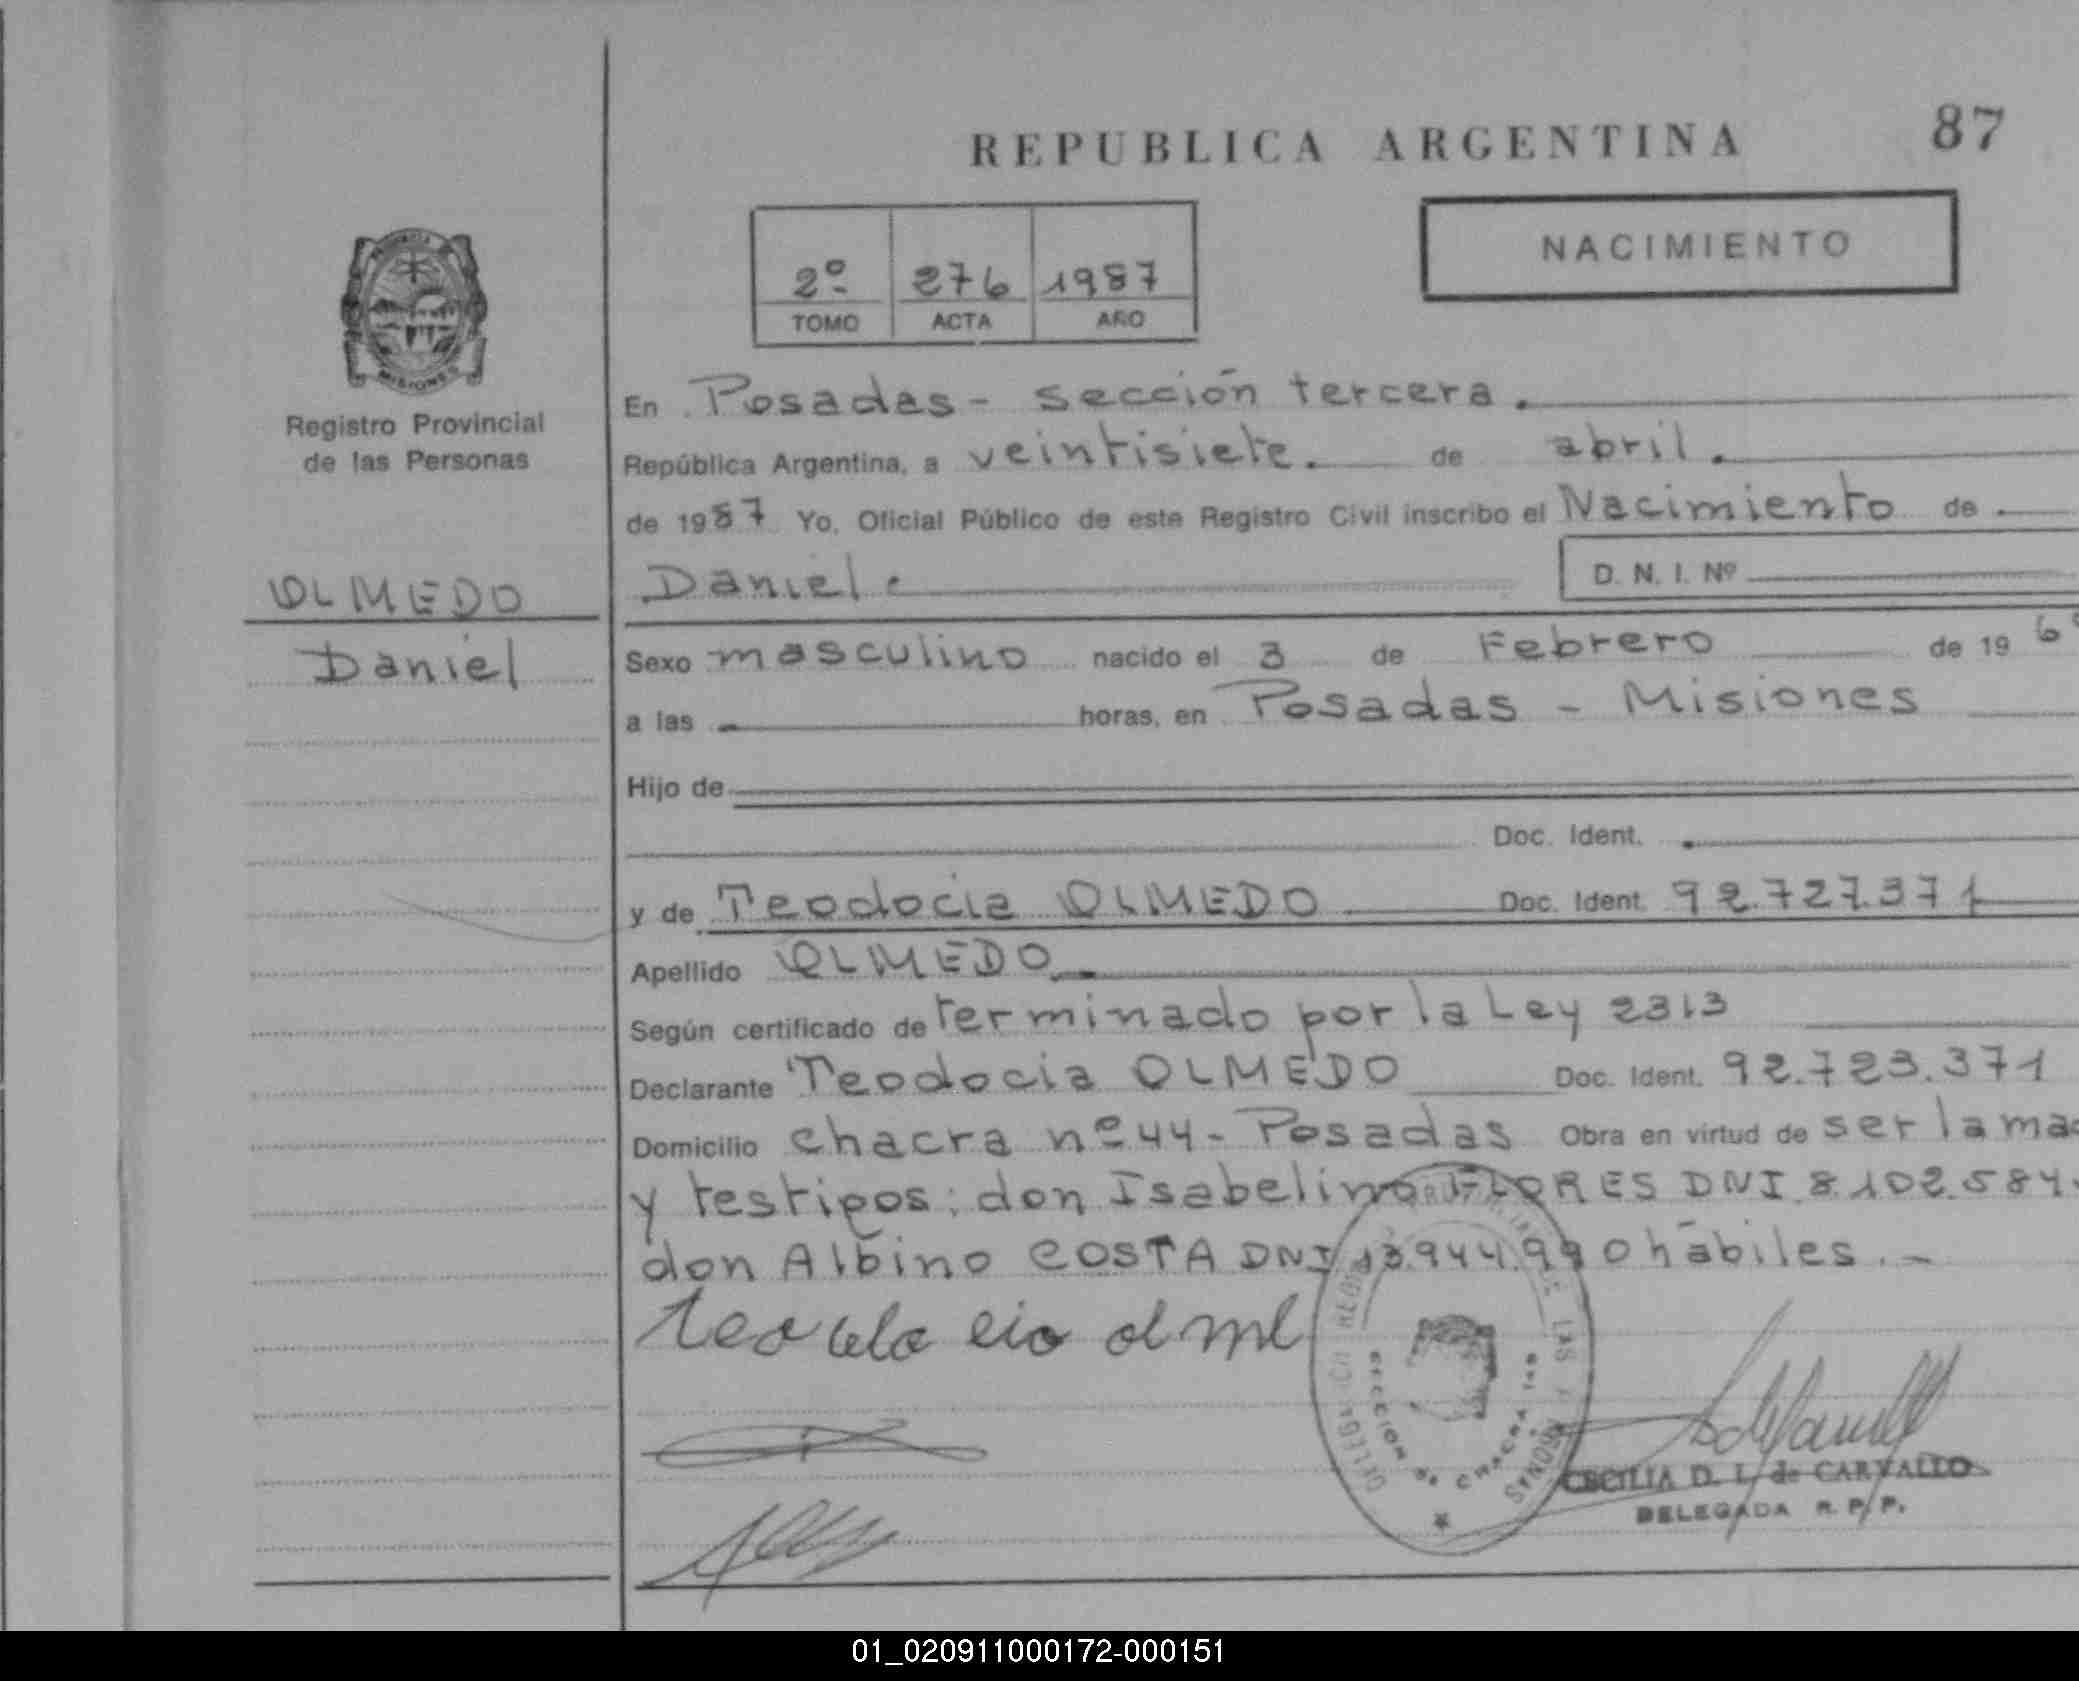 REPUBLICA ARGENTINA 87
2º 276 1987
TOMO ACTA AÑO
NACIMIENTO
MISIONES
Registro Provincial
de las Personas
OLMEDO
Daniel
En Posadas - sección tercera.
República Argentina, a veintisiete. de abril.
de 1987 Yo, Oficial Público de este Registro Civil inscribo el Nacimiento de
Daniel. D. N. I. Nº
Sexo masculino nacido el 3 de Febrero de 19 6
a las horas, en Posadas - Misiones
Hijo de
Doc. Ident.
y de Teodocia OLMEDO Doc. Ident. 92.727.371
Apellido OLMEDO.
Según certificado de terminado por la Ley 2313
Declarante Teodocia OLMEDO Doc. Ident. 92.723.371
Domicilio chacra nº 44 - Posadas Obra en virtud de ser la mad
y testigos: don Isabelino FLORES DNI 8.102.584.
don Albino COSTA DNI 13.944.990 hábiles. -
CECILIA D. L. de CARVALLO
DELEGADA R. P. P.
01_020911000172-000151